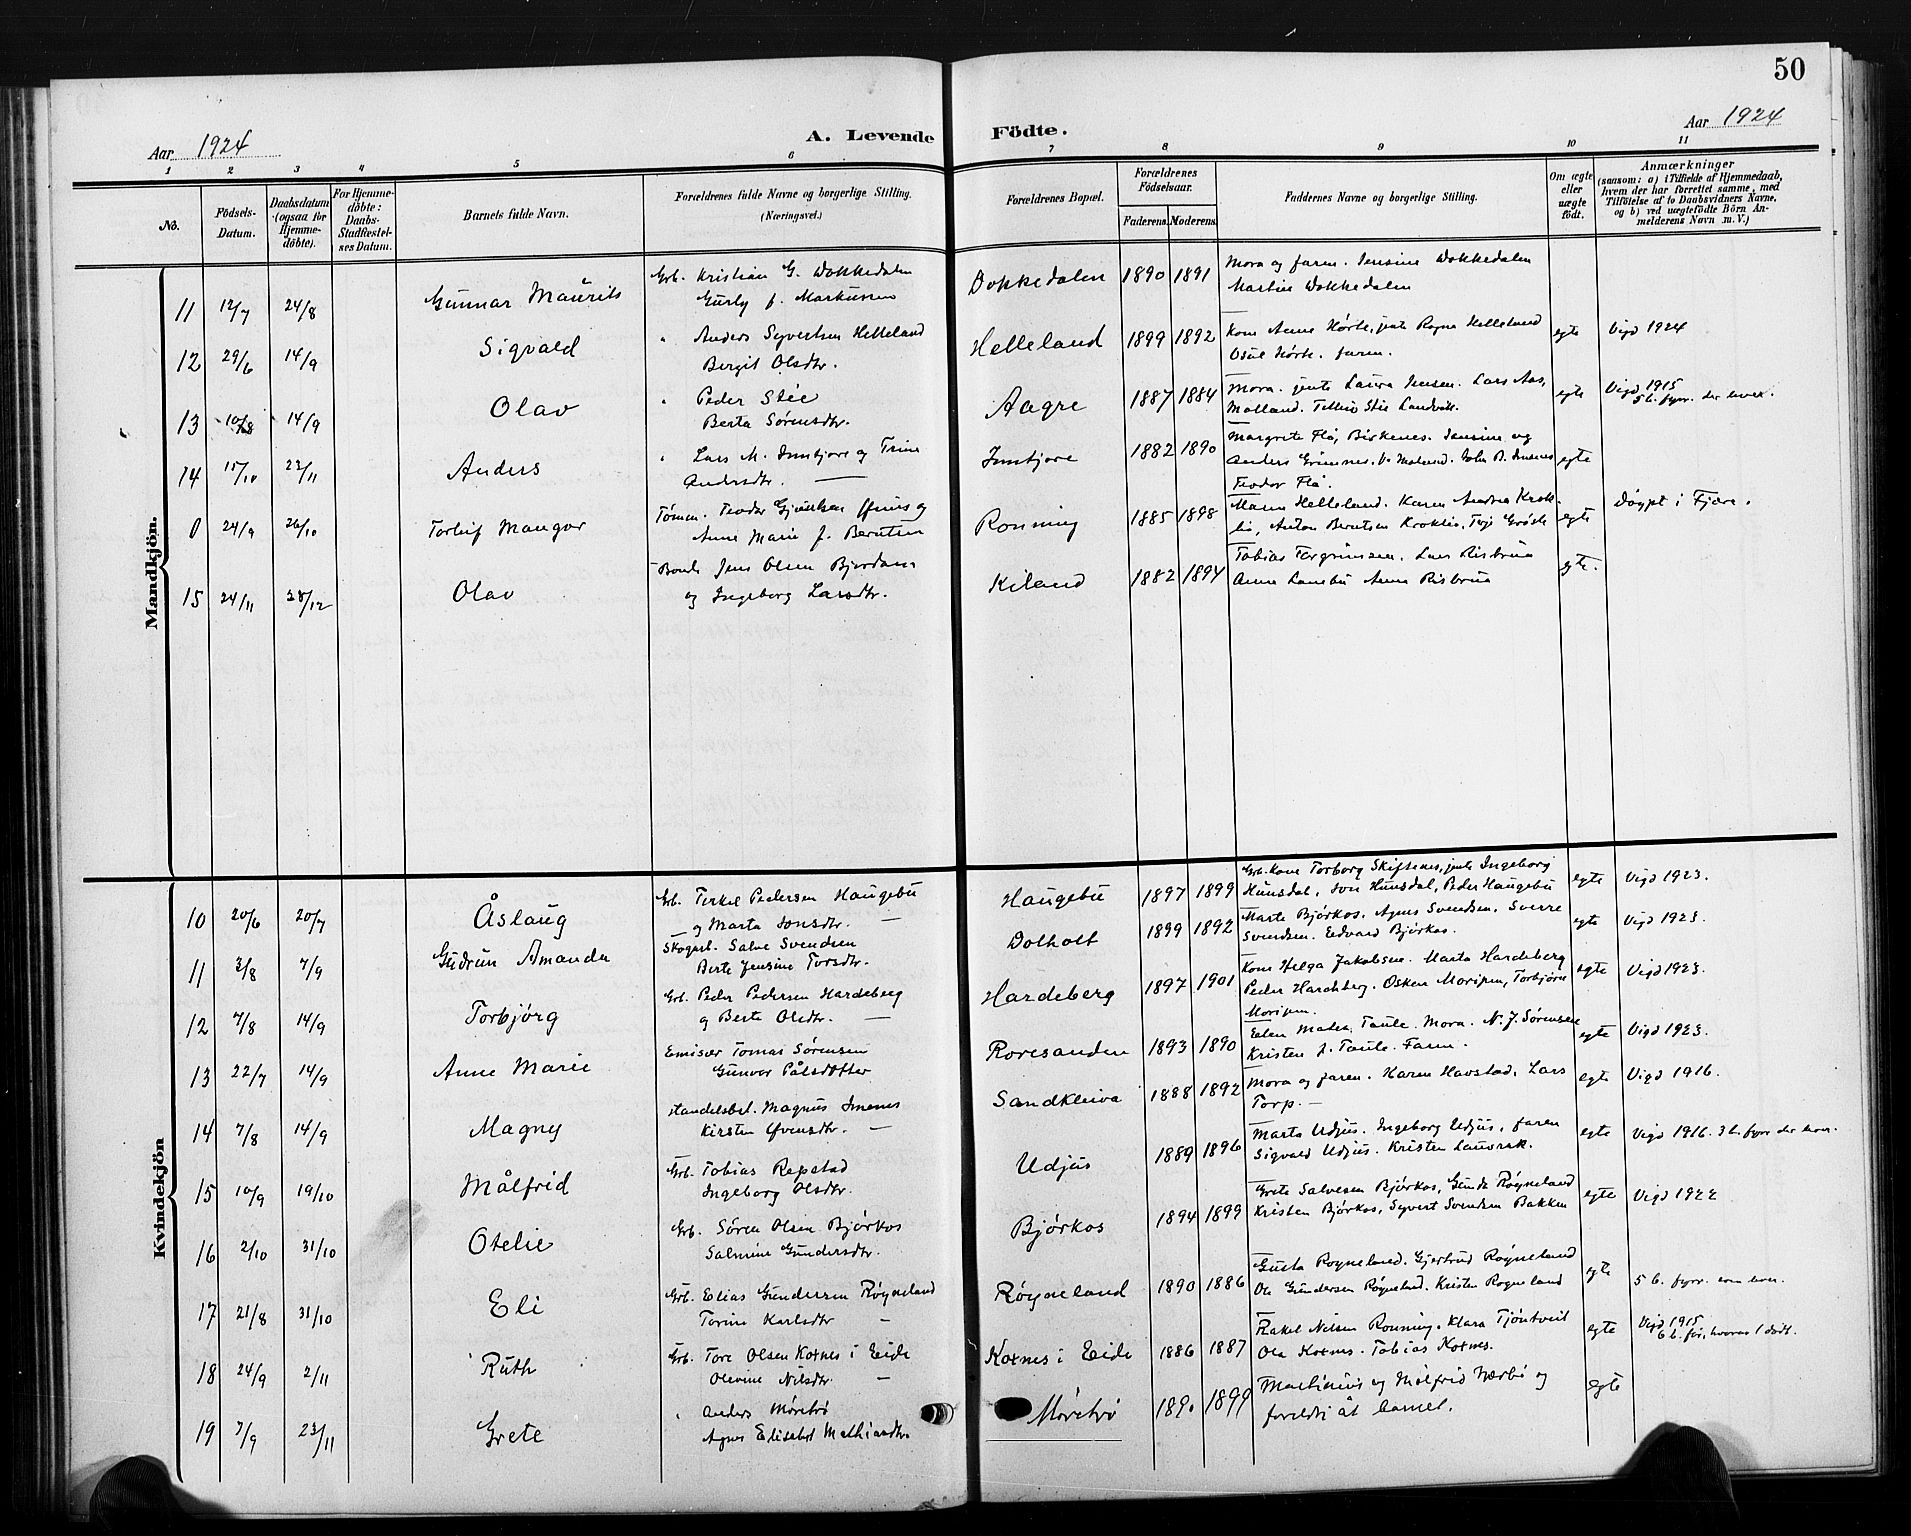 50
Aar 1924
A. Levende Födte.
Aar 1924
1 2 3 4 5 6 7 8 9 10 11
No.
Födsels-Datum.
Daabsdatum (ogsaa for Hjemmedöbte).
For Hjemmedöbte: Daabs-Stadfæstelses Datum.
Barnets fulde Navn.
Forældrenes fulde Navne og borgerlige Stilling. (Næringsvei.)
Forældrenes Bopæl.
Forældrenes Födselsaar.
Faderens. Moderens.
Faddernes Navne og borgerlige Stilling.
Om ægte eller uægte födt.
Anmærkninger
(saasom: a) i Tilfælde af Hjemmedaab, hvem der har forrettet samme, med Tilföielse af to Daabsvidners Navne, og b) ved uægtefödte Börn Anmelderens Navn m. V.)
Mandkjön.
11 12/7 24/8 Gunnar Maurits Grb. Kristian G. Dokkedalen
Gurly f. Markussen
Dokkedalen 1890 1891 Mora og faren. Jensine Dokkedalen
Martin Dokkedalen
12 29/6 14/9 Sigvald " Anders Syvertsen Helleland
Bergit Olsdtr.
Helleland 1899 1892 Kone Anne Hørte, jente Ragna Helleland
Osul Hørte. faren.
egte Vigd 1924
13 10/8 14/9 Olav " Peder Stie
Berta Sørensdtr.
Aagre 1887 1884 Mora. jente Laura Jensen. Lars Aas,
Molland. Stie Landvik.
egte Vigd 1915
5 b. fyrr. der
14 15/10 23/11 Anders " Lars M. Inntjore og Trine
Andersdtr. —
Inntjore 1882 1890 Margrete Flå, Birkenes. Jensine og
Anders V. Moland. John B. Jensens
Teodor Flå.
egte
0 24/9 26/10 Torleif Mangor Tømm. Teodor og
Anne Marie f. Berntsen
Rønning 1885 1898 Maren Helleland. Karen Andrea Krok-
lie, Anton Berntsen Kroklie, Terje
egte Døypt i Fjære.
15 24/11 28/12 Olav Bonde Jens Olsen
og Ingeborg Larsdtr.
Kiland 1882 1894 Tobias Torgrimsen. Lars Risbrua
Anna Anna Risbrua
egte.
Kvindekjön
10 20/6 20/7 Åslaug Grb. Terkel Pedersen Haugebu
og Marta Jonsdtr. —
Haugebu 1897 1899 Grb.kone Torborg Skiftenes, jente Ingeborg
Hunsdal, Jon Hunsdal, Peder Haugebu
egte Vigd 1923.
11 3/8 7/9 Gudrun Amanda Skogarb. Salve Svendsen
Berte Jensine Torsdtr.
Dolholt 1899 1892 Marte Bjørkos. Agnes Svendsen. Sverre
Svendsen. Edvard Bjørkos.
egte Vigd 1923.
12 7/8 14/9 Torbjørg Grb. Peder Pedersen Hardeberg
og Berte Olsdtr. —
Hardeberg 1897 1901 Kone Helga Jakobsen. Marta Hardeberg
Peder Hardeberg. Oskar Moripen, Torbjørn
Moripen.
egte Vigd 1923.
13 22/7 14/9 Anne Marie Emisær Tomas Sørensen
Gunvor Pålsdotter
Roresanden 1893 1890 Mora. N. J. Sørensen
Kristen J. Faren.
egte Vigd 1923.
14 7/8 14/9 Magny Handelsbet. Magnus Imenes
Kirsten —
Sandkleiva 1888 1892 Mora og faren. Karen Havstad. Lars
Torp. —
egte Vigd 1916.
15 10/9 19/10 Målfrid Grb. Tobias Repstad
Ingeborg Olsdtr.
Udjus 1889 1896 Marta Udjus. Ingeborg Udjus, faren
Sigvald Udjus. Kristen Lauvrak.
egte Vigd 1916. 3 b. fyrr der
16 2/10 31/10 Otelie Grb. Søren Olsen Bjørkos
Salmine Gundersdtr.
Bjørkos 1894 1899 Grete Salvesen Bjørkos, Røyneland
Kristen Bjørkos, Syvert Svendsen Bakken
egte Vigd 1922
17 21/8 31/10 Eli Grb. Elias Gundersen Røyneland
Torine Karlsdtr —
Røyneland 1890 1886 Gusta Røyneland. Gjertrud Røyneland
Ola Gundersen Røyneland. Kristen Røyneland
egte 5 b. fyrr.
18 24/9 2/11 Ruth Grb. Tore Olsen Kotnes i Eide
Olevine Nilsdtr. —
Kotnes i Eide 1886 1887 Rakel Nilsen Rønning. Klara Tjøntveit
Ola Kotnes. Tobias Kotnes.
egte Vigd 1915
6 b. før, hvorav 1 dødf.
19 7/9 23/11 Grete " Anders Møretrø
Agnes Elisabet Mathiasdtr.
Møretrø 1890 1899 Martinius og Målfrid og
foreldri åt barnet.
egte